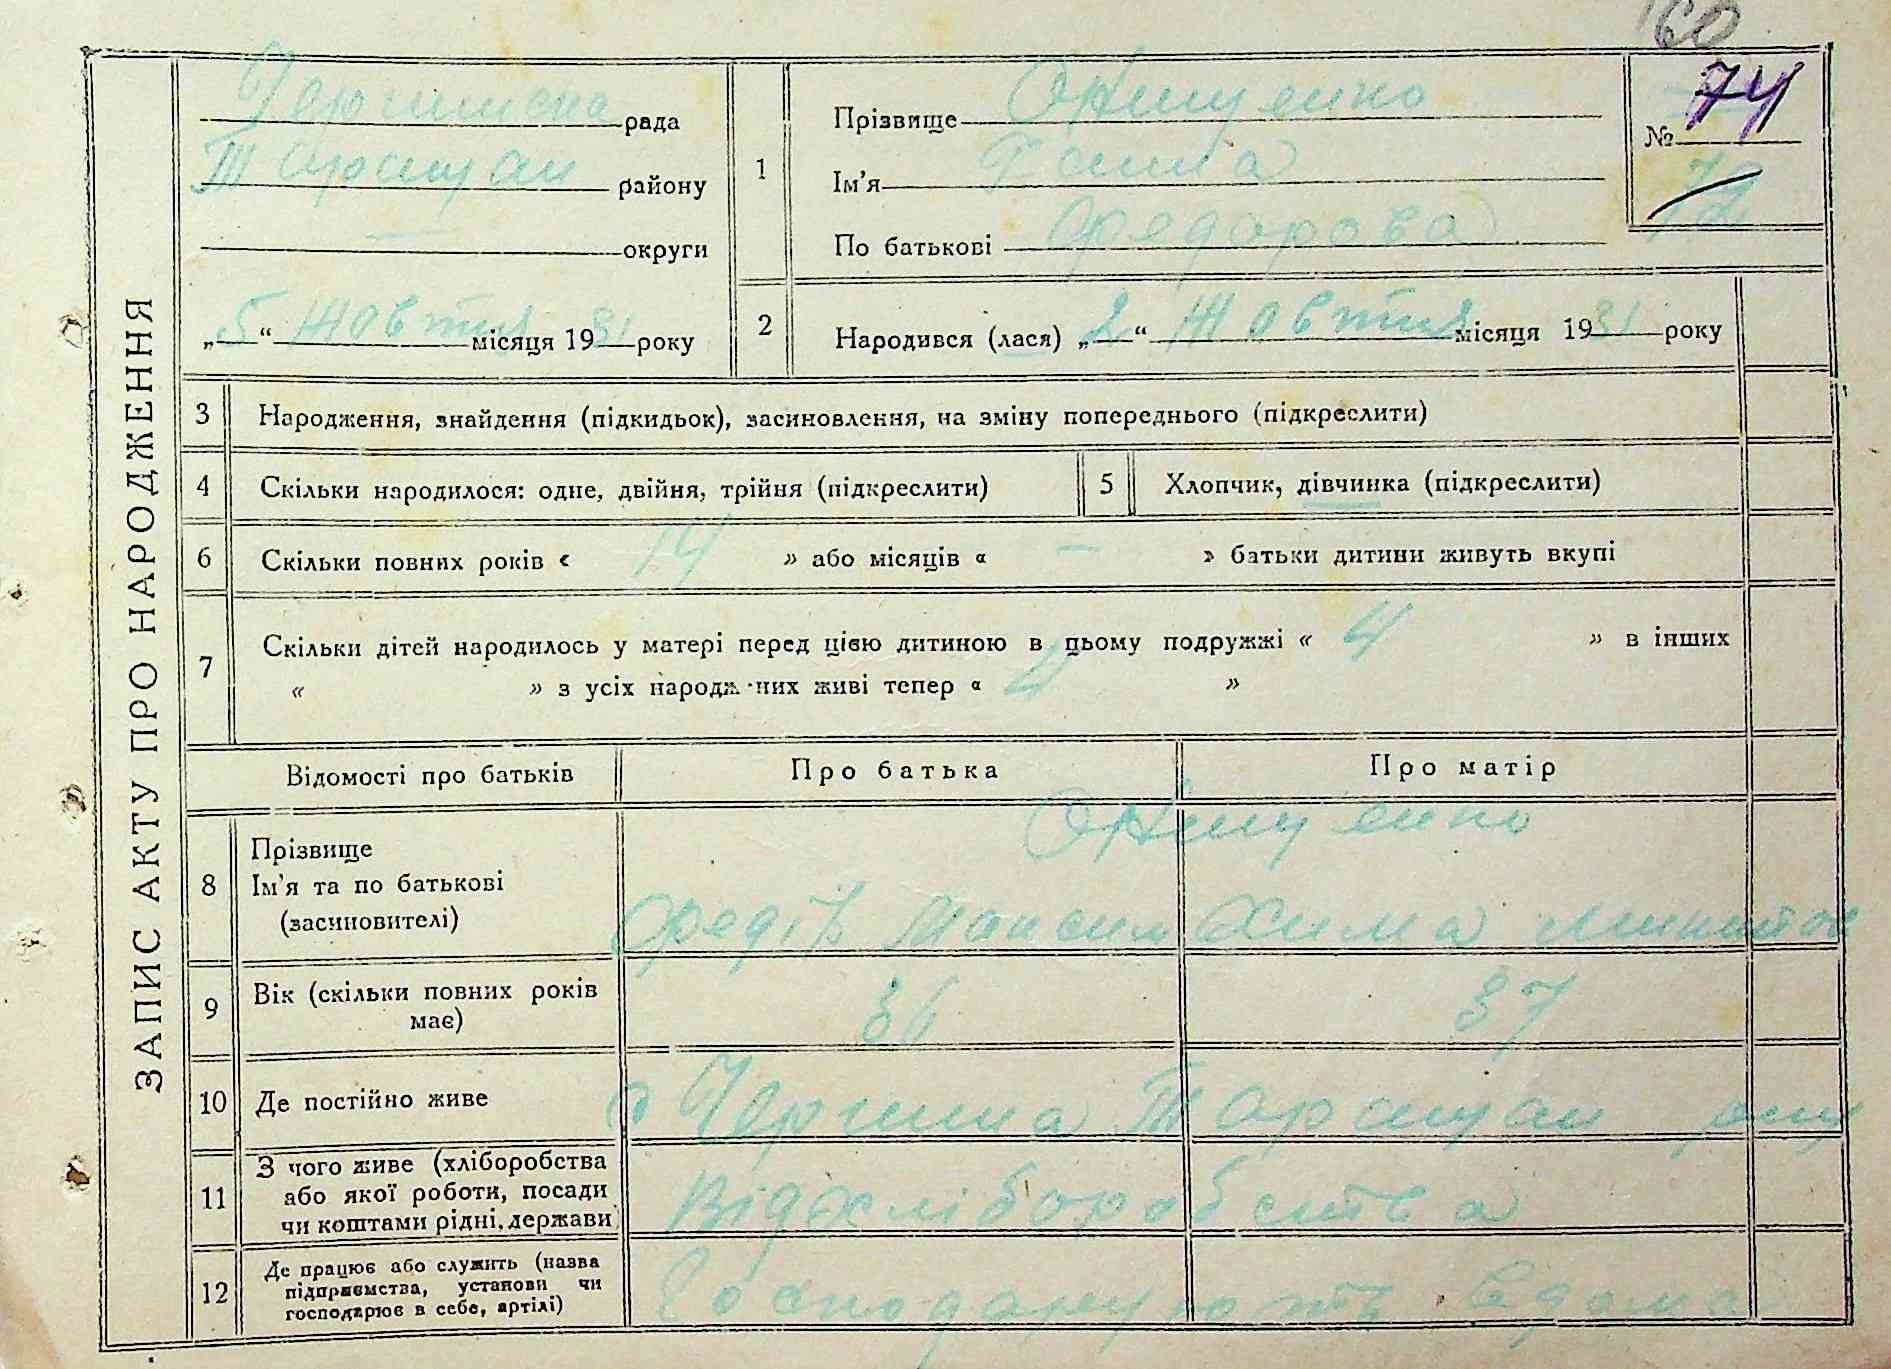 160
ЗАПИС АКТУ ПРО НАРОДЖЕННЯ
рада
Таращан району
округи
„5“ Жовтня місяця 1931 року
1
Прізвище Онищенко
Ім'я Ганна
По батькові Федорова
№ 74
72
2
Народився (лася) „2“ Жовтня місяця 1931 року
3 Народження, знайдення (підкидьок), засиновлення, на зміну попереднього (підкреслити)
4 Скільки народилося: одне, двійня, трійня (підкреслити)
5 Хлопчик, дівчинка (підкреслити)
6 Скільки повних років « 14 » або місяців « — » батьки дитини живуть вкупі
7 Скільки дітей народилось у матері перед цією дитиною в цьому подружжі « 4 » в інших
« » з усіх народж них живі тепер « 4 »
Відомості про батьків
Про батька
Про матір
8 Прізвище
Ім'я та по батькові
(засиновителі)
Онищенко
Федір Максим
Хима
9 Вік (скільки повних років
має)
36
37
10 Де постійно живе
Таращан
11 З чого живе (хліборобства
або якої роботи, посади
чи коштами рідні, держави
Від хліборобства
12 Де працює або служить (назва
підприємства, установи чи
господарює в себе, артілі)
Господарюють вдома